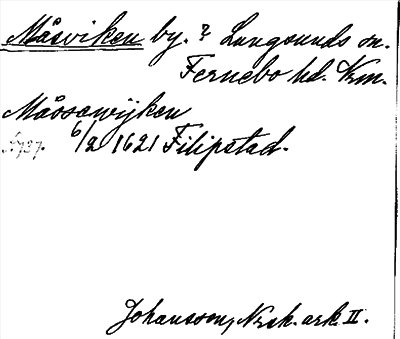 Måsviken by. ? Lungsunds sn.
Fernebo hd. Vrm.
Måssawijken
6/2 1621 Filipstad.
Johansson, Nrsk. ark. II.